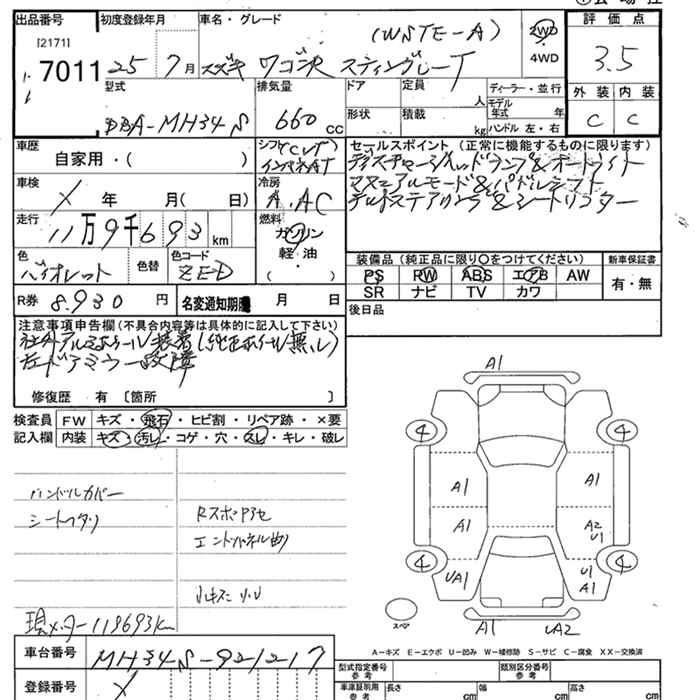 出品番号 初度登録年月 車名・グレード 評価点
[2171] 7011 25 7月 スズキ ワゴンR スティングレーT (WSTE-A) 2WD ・ 4WD 3.5
型式 排気量 ドア 定員 ディーラー・並行 外装 内装
DBA-MH34S 660 cc 形状 積載 人 kg モデル年式 年 ハンドル 左・右 C C
車歴 シフト(CVT) セールスポイント(正常に機能するものに限ります)
自家用・( ) インパネAT ディスチャージヘッドランプ&オートライト
車検 冷房 マニュアルモード&パドルシフト
X 年 月( 日) A.AC チルトステアリング&シートリフター
走行 燃料
11万9千693km ガソリン
軽・油
( ・ )
色 色替 色コード 装備品(純正品に限り○をつけてください) 新車保証書
バイオレット ZED PS PW ABS エアB AW 有・無
SR ナビ TV カワ
R券 8.930円 名変通知期限 月 日 後日品
注意事項申告欄(不具合内容等は具体的に記入して下さい)
社外アルミホイール装着(純正ホイール無し)
左ドアミラー故障
修復歴 有 [箇所 ]
検査員 FW キズ・飛石・ヒビ割・リペア跡・×要
記入欄 内装 キズ・汚レ・コゲ・穴・スレ・キレ・破レ
ハンドルカバー
シートヘタリ Rスポアケセ
エンドパネル曲り
現メーター119693Km
A1
4 4
A1 A1
A1 A2 U1
4 4
UA1 U1 A1
スペア A1 UA2
A-キズ E-エクボ U-凹み W-補修跡 S-サビ C-腐食 XX-交換済
車台番号 MH34S-921217
登録番号 X
型式指定番号 参考 類別区分番号 参考
車庫証明用 参考 長さ cm 幅 cm 高さ cm